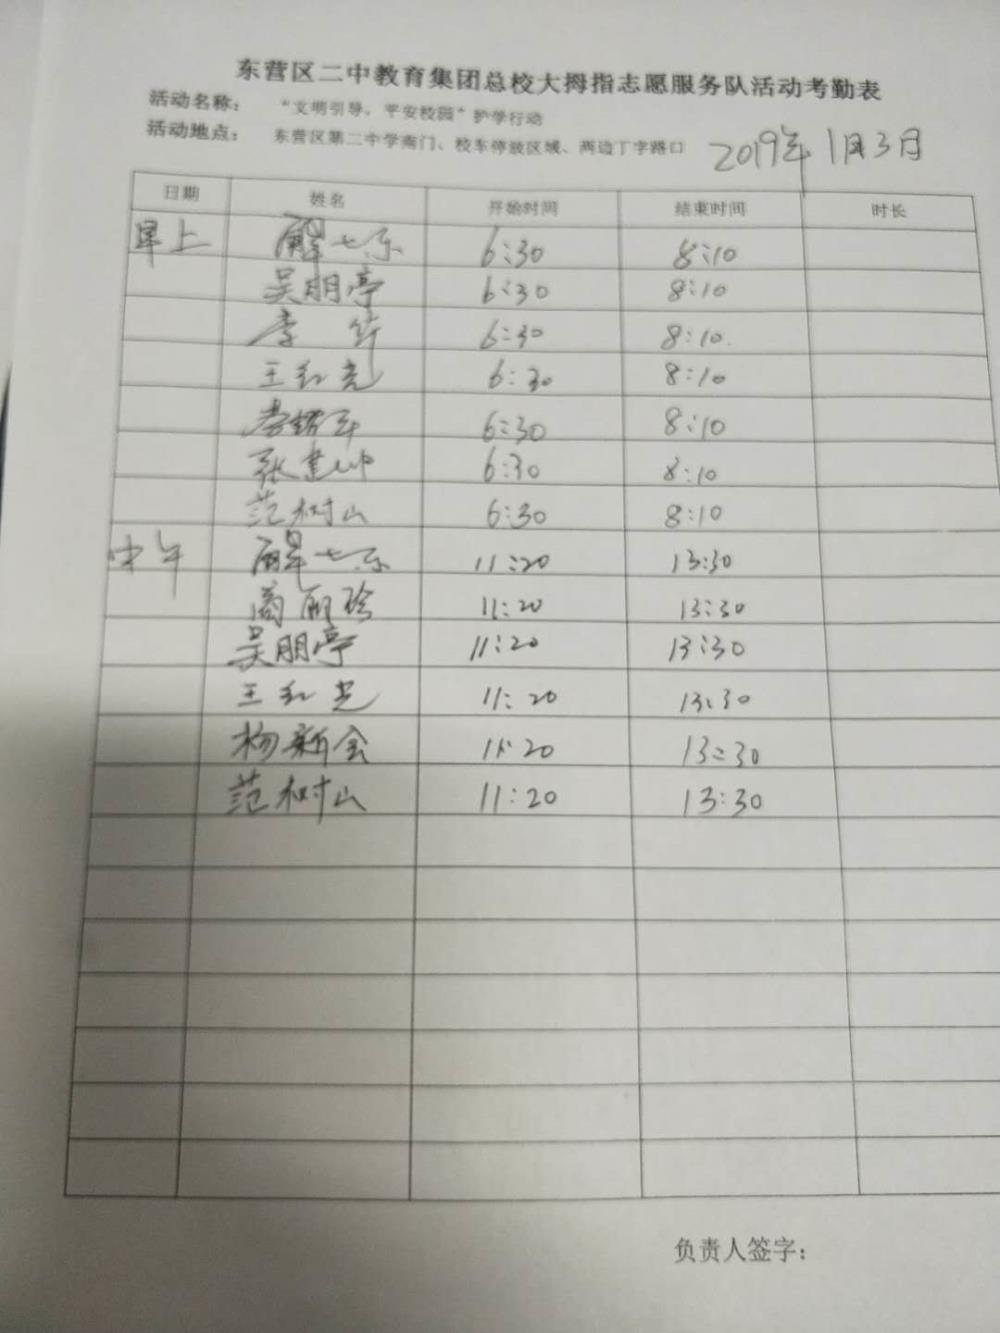 东营区二中教育集团总校大拇指志愿服务队活动考勤表
活动名称： “文明引导，平安校园”护学行动
活动地点： 东营区第二中学南门、校车停放区域、两边丁字路口 2019年1月3日
日期 姓名 开始时间 结束时间 时长
早上 解七东 6:30 8:10
吴朋亭 6:30 8:10
李 6:30 8:10
王红光 6:30 8:10
李 6:30 8:10
张建 6:30 8:10
范树山 6:30 8:10
中午 解七东 11:20 13:30
商丽珍 11:20 13:30
吴朋亭 11:20 13:30
王红光 11:20 13:30
杨新会 11:20 13:30
范树山 11:20 13:30
负责人签字：